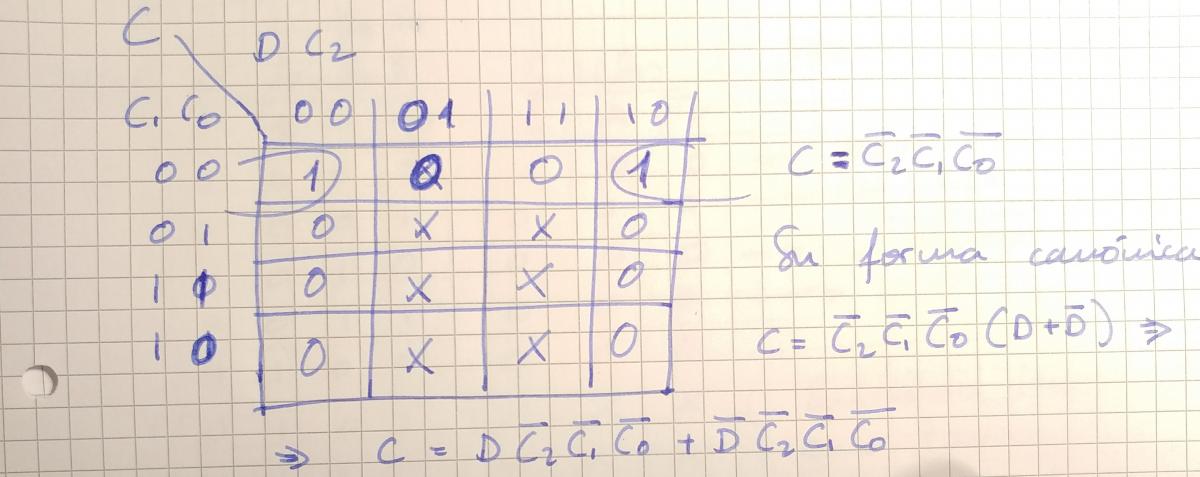 C
D C₂
C₁ C₀ 00 01 11 10
00 1 0 0 1
01 0 X X 0
11 0 X X 0
10 0 X X 0
C = C̅₂ C̅₁ C̅₀
Su forma canónica
C = C̅₂ C̅₁ C̅₀ (D + D̅) ⇒
⇒ C = D C̅₂ C̅₁ C̅₀ + D̅ C̅₂ C̅₁ C̅₀